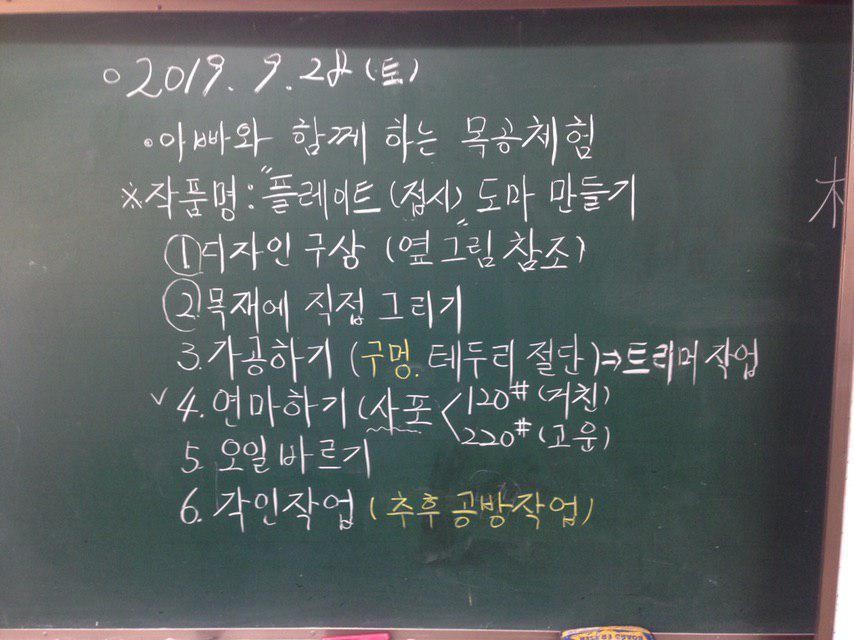 ○ 2019. 9. 28 (토)
• 아빠와 함께 하는 목공체험
※작품명: "플레이트(접시)" 도마 만들기
① 디자인 구상 (옆 그림 참조)
② 목재에 직접 그리기
3. 가공하기 (구멍. 테두리 절단)⇒트리머작업
✓ 4. 연마하기 (사포 < 120# (거친)
220# (고운)
5. 오일 바르기
6. 각인작업 (추후 공방작업)
木